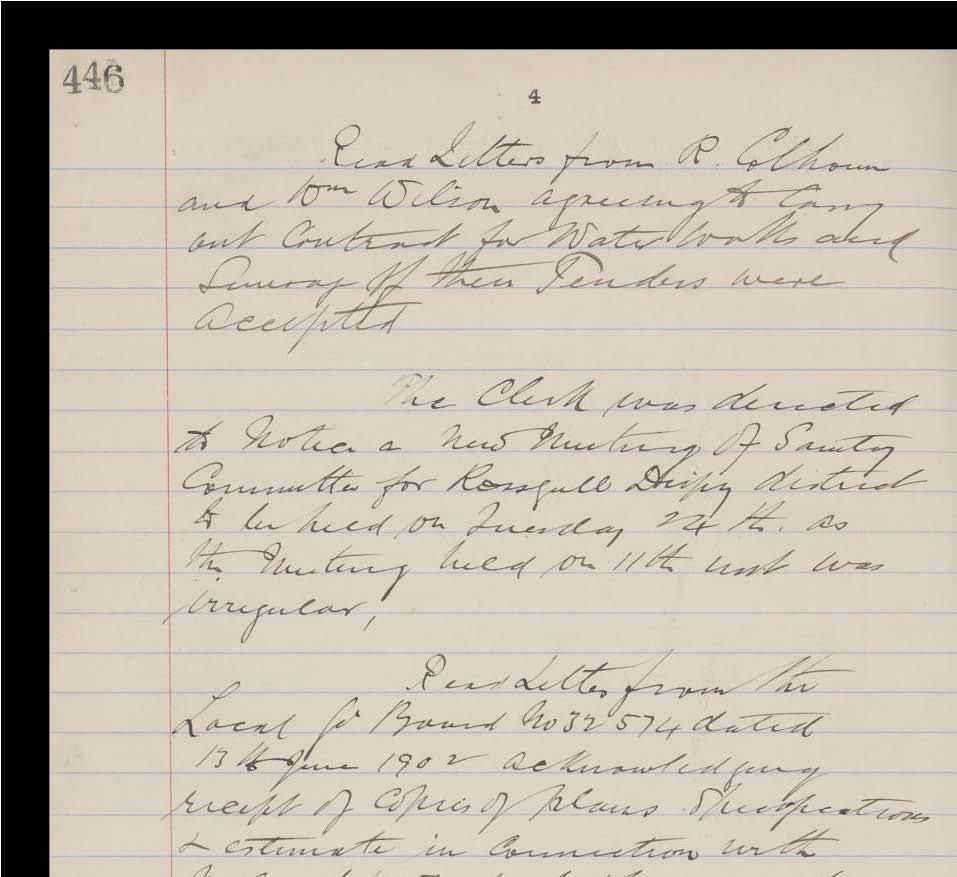 446
4
Read Letters from R. Colhoun
and Wm Wilson agreeing to Carry
out Contract for Water Works and
Sewerage If their Tenders were
accepted
The Clerk was directed
to Notice a New Meeting Of Sanitry
Committee for Rossgull Dispy district
to be held on Tuesday 24 th. as
the Meeting held on 11th inst was
irregular,
Read Letter from the
Local Gt Board No 32574 dated
13th June 1902 acknowledging
receipt of Copies of plans Specifications
& estimate in Connection with